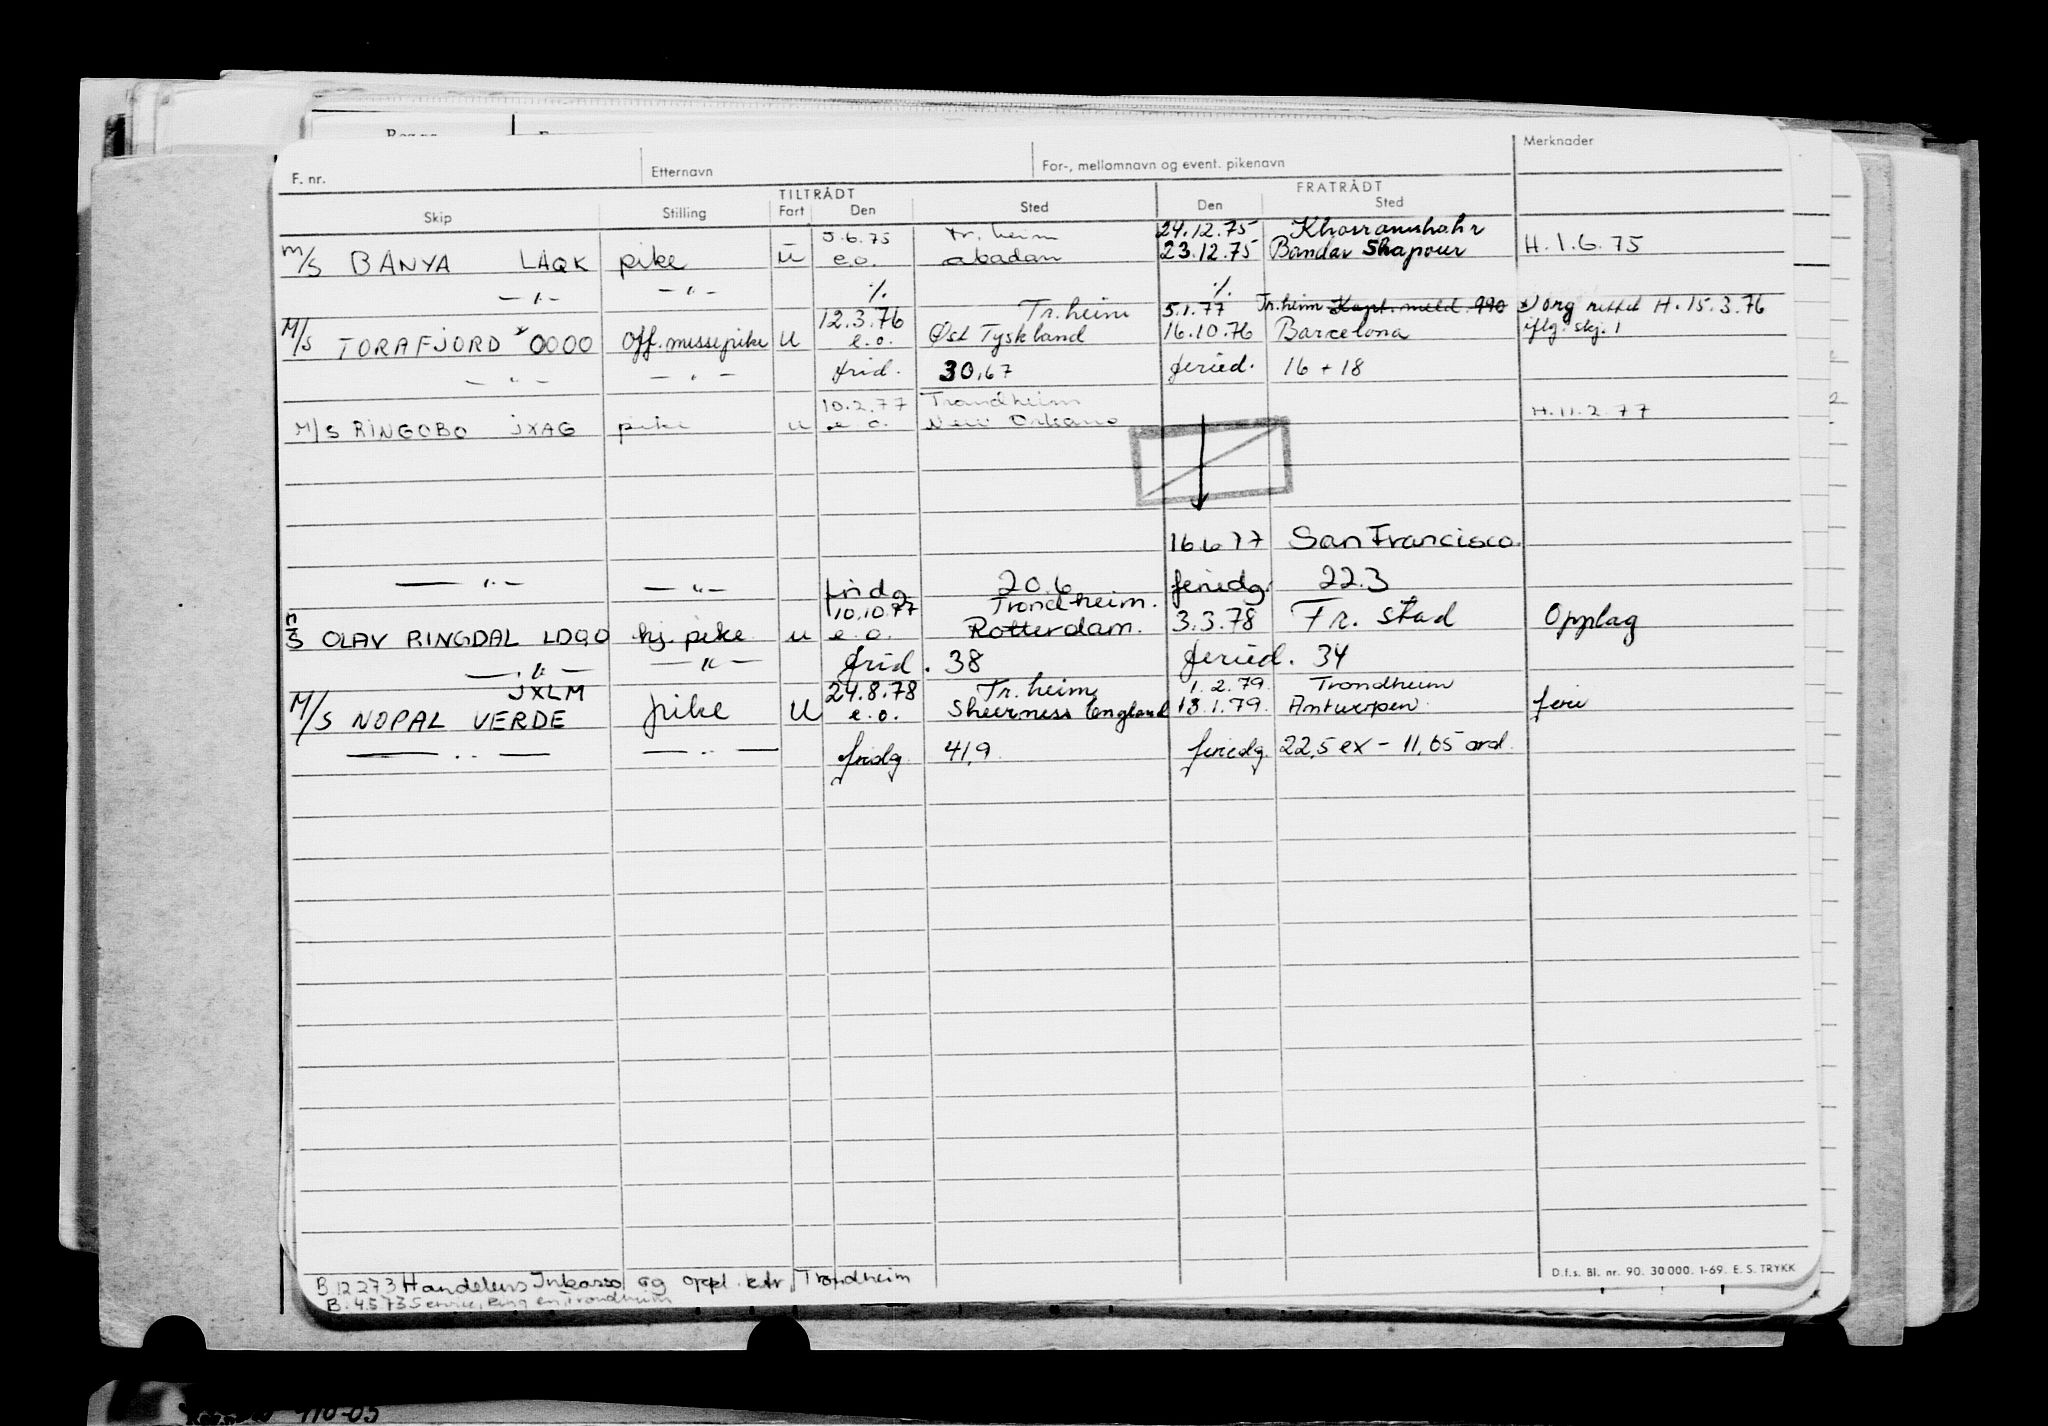 F. nr. Etternavn For-, mellomnavn og event. pikenavn Merknader
TILTRÅDT FRATRÅDT
Skip Stilling Fart Den Sted Den Sted
5.6.75 Tr. heim 24.12.75 Khorramshahr
M/S BANYA LAQK pike U e.o. abadan 23.12.75 Bandar Shapour H. 1.6.75
— " — — " — % %
12.3.76 Tr. heim 5.1.77 Tr. heim Kapt. meld. 990 *) org rettet H. 15.3.76
M/S TORAFJORD * OOOO Off. messepike U e.o. Øst Tyskland 16.10.76 Barcelona iflg. skj. 1
— " — — " — frid. 30,67 feried. 16 + 18
10.2.77 Trondheim
M/S RINGOBO JXAG pike u e.o. New Orleans H. 11.2.77
16.6.77 San Francisco.
— " — — " — fridg 20.6 feriedg. 22.3
10.10.77 Trondheim.
M/S OLAV RINGDAL LDQO hj. pike u e.o. Rotterdam. 3.3.78 Fr. stad Opplag
— " — — " — frid. 38 feried. 34
JXLM 24.8.78 Tr. heim 1.2.79. Trondheim
M/S NOPAL VERDE pike U e.o. Sheerness England 13.1.79. Antwerpen. ferie
— " — — " — fridg. 41,9 feriedg. 22,5 ex – 11,65 ord.
D.f.s. Bl. nr. 90. 30 000. 1-69. E. S. TRYKK
B. 12273 Handelens Inkasso og oppl. ktr, Trondheim
B. 4573 Service, Trondheim
910-05